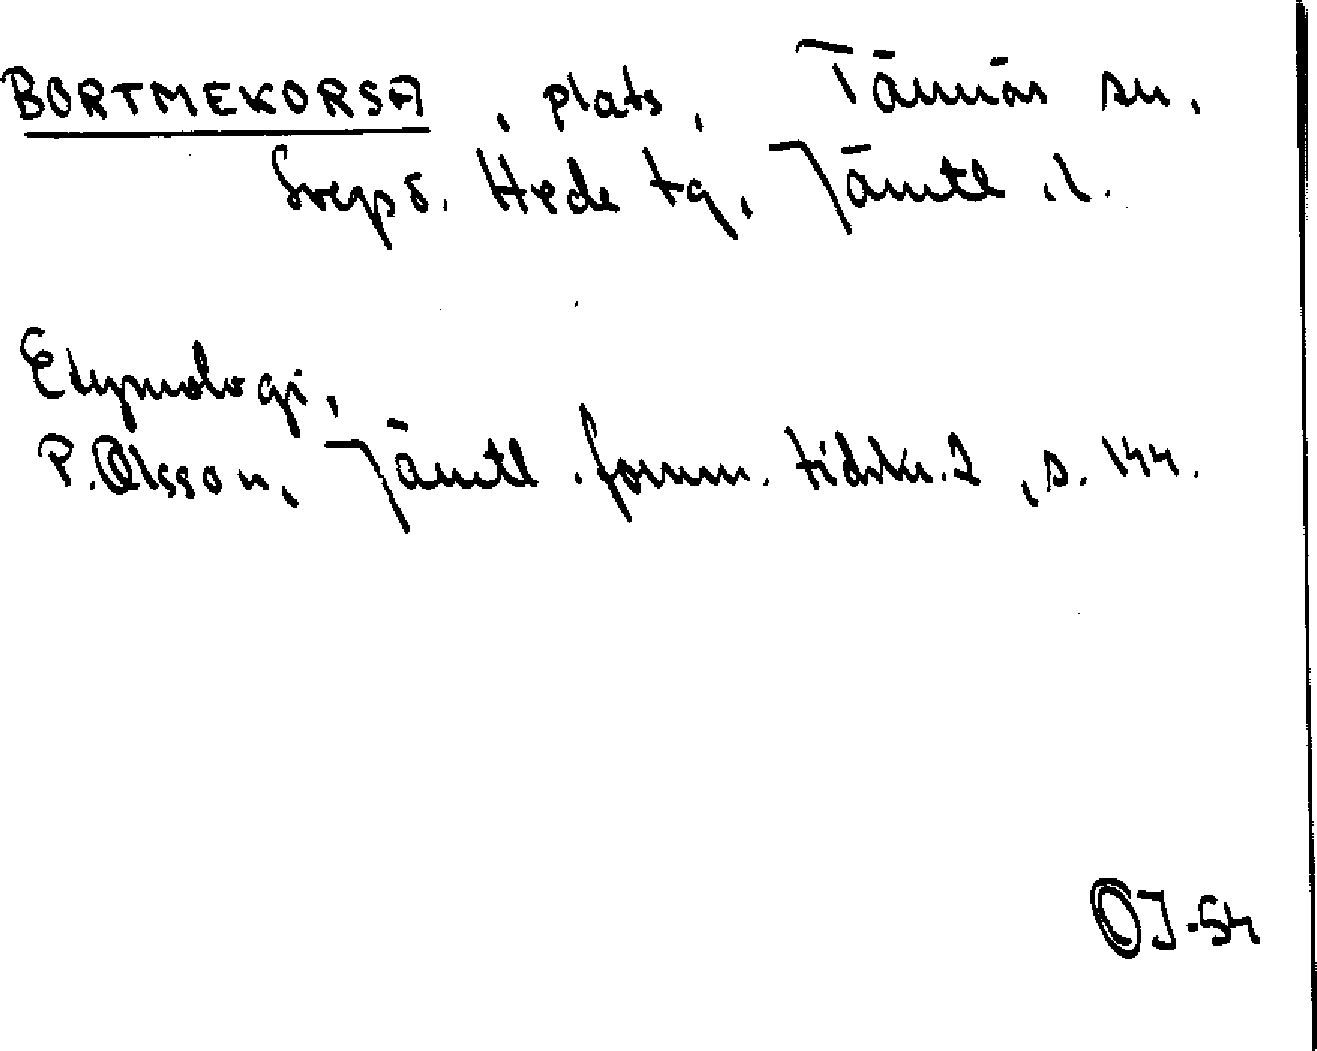 BORTMEKORSA, plats, Tännäs sn.
Svegs d. Hede tg, Jämtl. l.
Etymologi,
P. Olsson, Jämtl. fornm. tidskr. 2, s. 144.
OJ-54